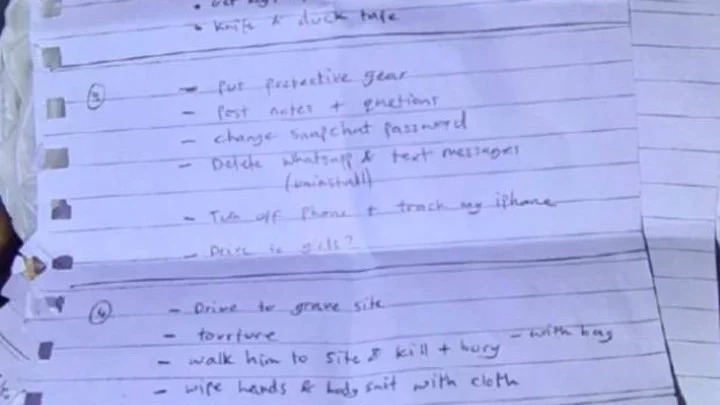 • knife & duck tape
③
- Put protective gear
- Post notes + quetions
- change snapchat password
- Delete whatsapp & text messages
(uninstall)
- Turn off Phone + track my iphone
- Drive is girls?
④
- Drive to grave site
- tourture
- walk him to site & kill + bury - with bag
- wipe hands & body suit with cloth